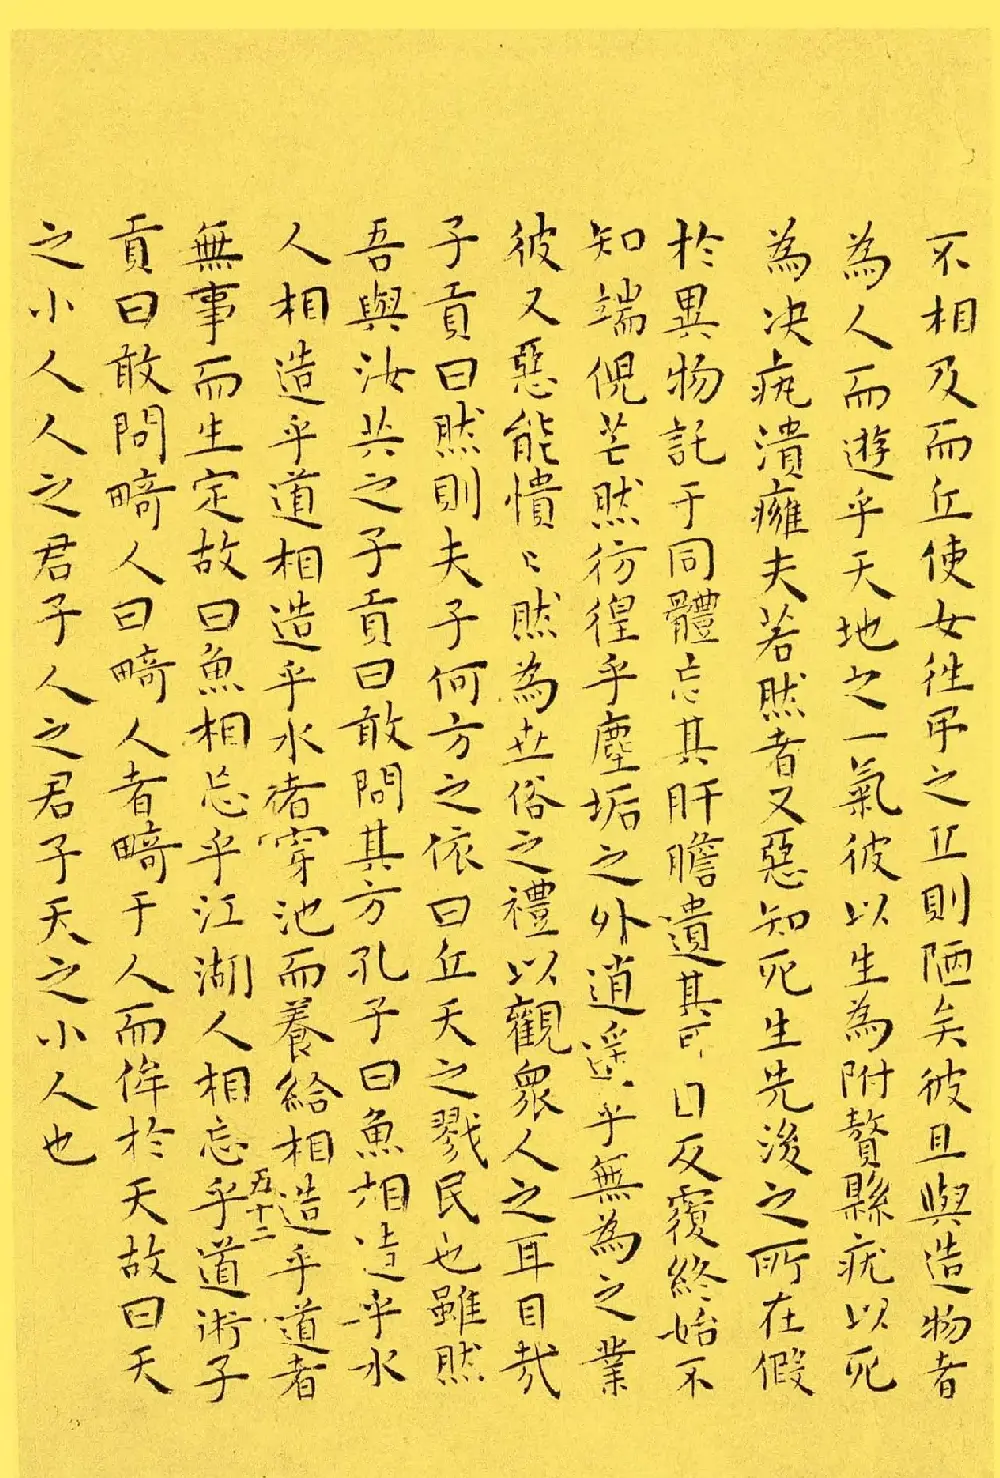 不相及而丘使女徃弔之丘則陋矣彼且與造物者
為人而遊乎天地之一氣彼以生為附贅縣疣以死
為决𤴯潰癰夫若然者又惡知死生先後之所在假
於異物託于同體忘其肝膽遺其耳目反覆終始不
知端倪芒然彷徨乎塵垢之外逍遥乎無為之業
彼又惡能憒〻然為世俗之禮以觀衆人之耳目哉
子貢曰然則夫子何方之依曰丘天之戮民也雖然
吾與汝共之子貢曰敢問其方孔子曰魚相造乎水
人相造乎道相造乎水者穿池而養給相造乎道者
五十二
無事而生定故曰魚相忘乎江湖人相忘乎道術子
貢曰敢問畸人曰畸人者畸于人而侔於天故曰天
之小人人之君子人之君子天之小人也